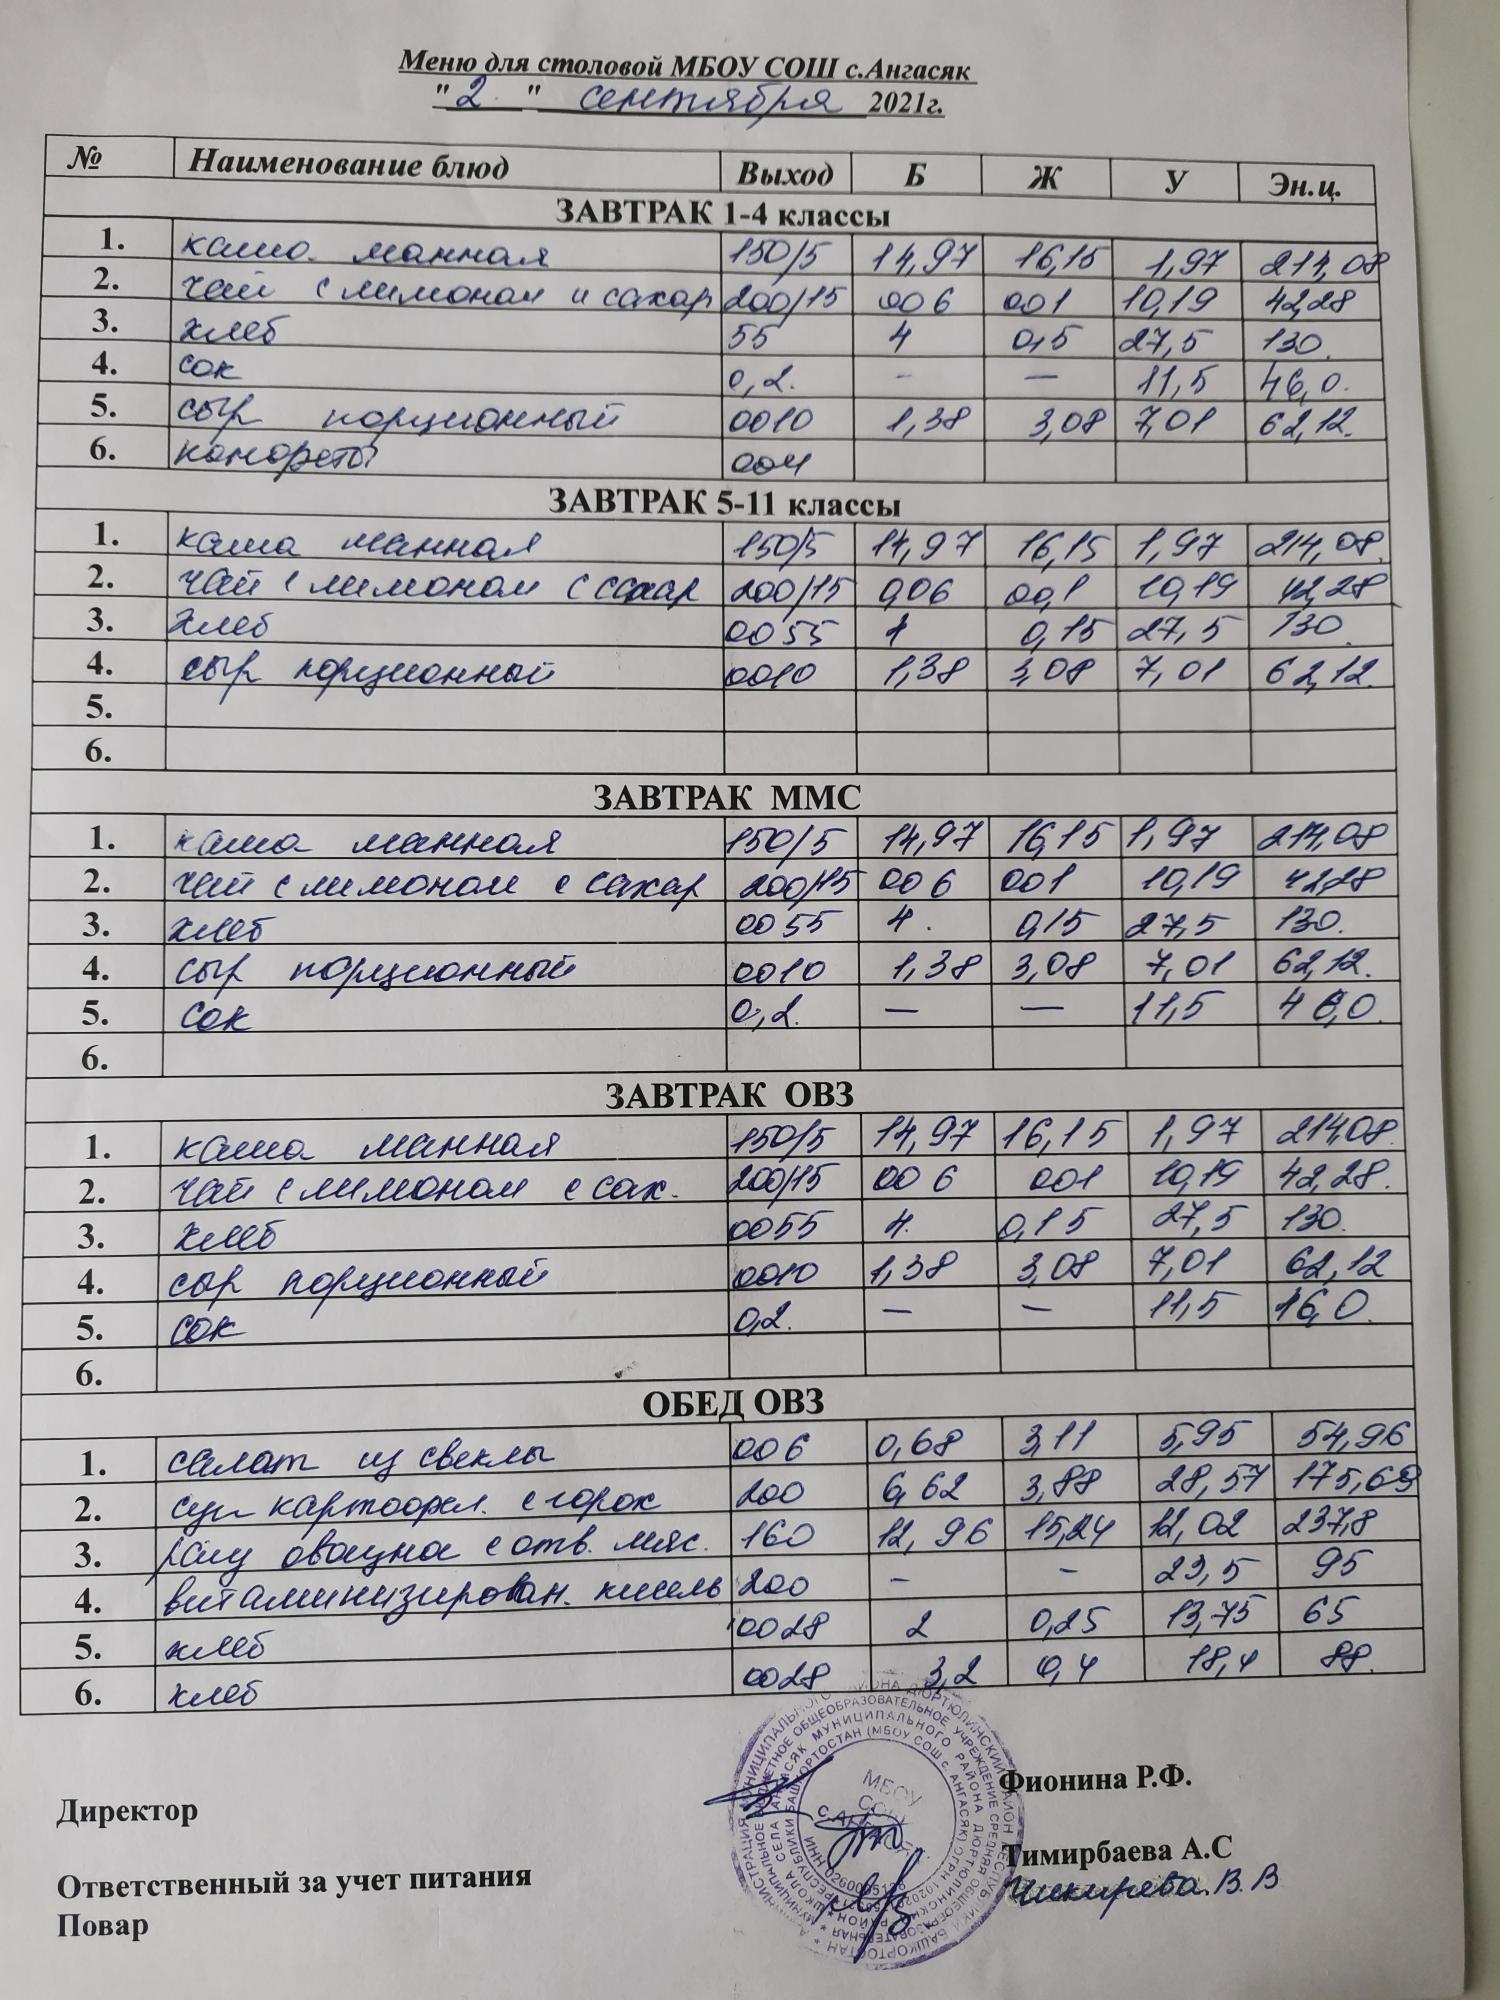 Меню для столовой МБОУ СОШ с.Ангасяк
"2" сентября 2021г.
№ Наименование блюд Выход Б Ж У Эн.ц.
ЗАВТРАК 1-4 классы
1. каша манная 150/5 14,97 16,15 1,97 214,08
2. чай с лимоном и сахар 200/15 006 001 10,19 42,28
3. хлеб 55 4 0,5 27,5 130.
4. сок 0,2. - — 11,5 46,0.
5. сыр порционный 0010 1,38 3,08 7,01 62,12.
6. 004
ЗАВТРАК 5-11 классы
1. каша манная 150/5 14,97 16,15 1,97 214,08.
2. чай с лимоном с сахар 200/15 0,06 00,1 10,19 42,28
3. хлеб 0055 4 0,15 27,5 130.
4. сыр порционный 0010 1,38 3,08 7,01 62,12.
5.
6.
ЗАВТРАК ММС
1. каша манная 150/5 14,97 16,15 1,97 214,08
2. чай с лимоном с сахар 200/15 006 001 10,19 42,28
3. хлеб 0055 4. 0,15 27,5 130.
4. сыр порционный 0010 1,38 3,08 7,01 62,12.
5. сок 0,2. — — 11,5 46,0.
6.
ЗАВТРАК ОВЗ
1. каша манная 150/5 14,97 16,15 1,97 214,08.
2. чай с лимоном с сах. 200/15 006 001 10,19 42,28.
3. хлеб 0055 4. 0,15 27,5 130.
4. сыр порционный 0010 1,38 3,08 7,01 62,12
5. сок 0,2. — — 11,5 46,0.
6.
ОБЕД ОВЗ
1. салат из свеклы 006 0,68 3,11 5,95 54,96
2. суп картофел. с горох 200 6,62 3,88 28,57 175,69
3. рагу с отв. мяс. 160 12,96 15,24 12,02 237,8
4. витаминизирован. кисель 200 - - 23,5 95
5. хлеб 0028 2 0,25 13,75 65
6. хлеб 0028 3,2 0,4 18,4 88.
МБОУ
СОШ
Директор Фионина Р.Ф.
Ответственный за учет питания Тимирбаева А.С
Повар Чикирева В.В